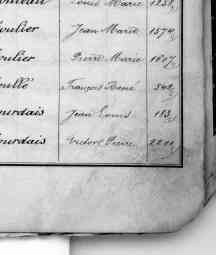 Louis Marie 1251,
oulier Jean Marie 1574,
oulier Pierre Marie 1807,
oullé François René 548,
ourdais Jean Louis 183,
ourdais Victor Pierre 2210,